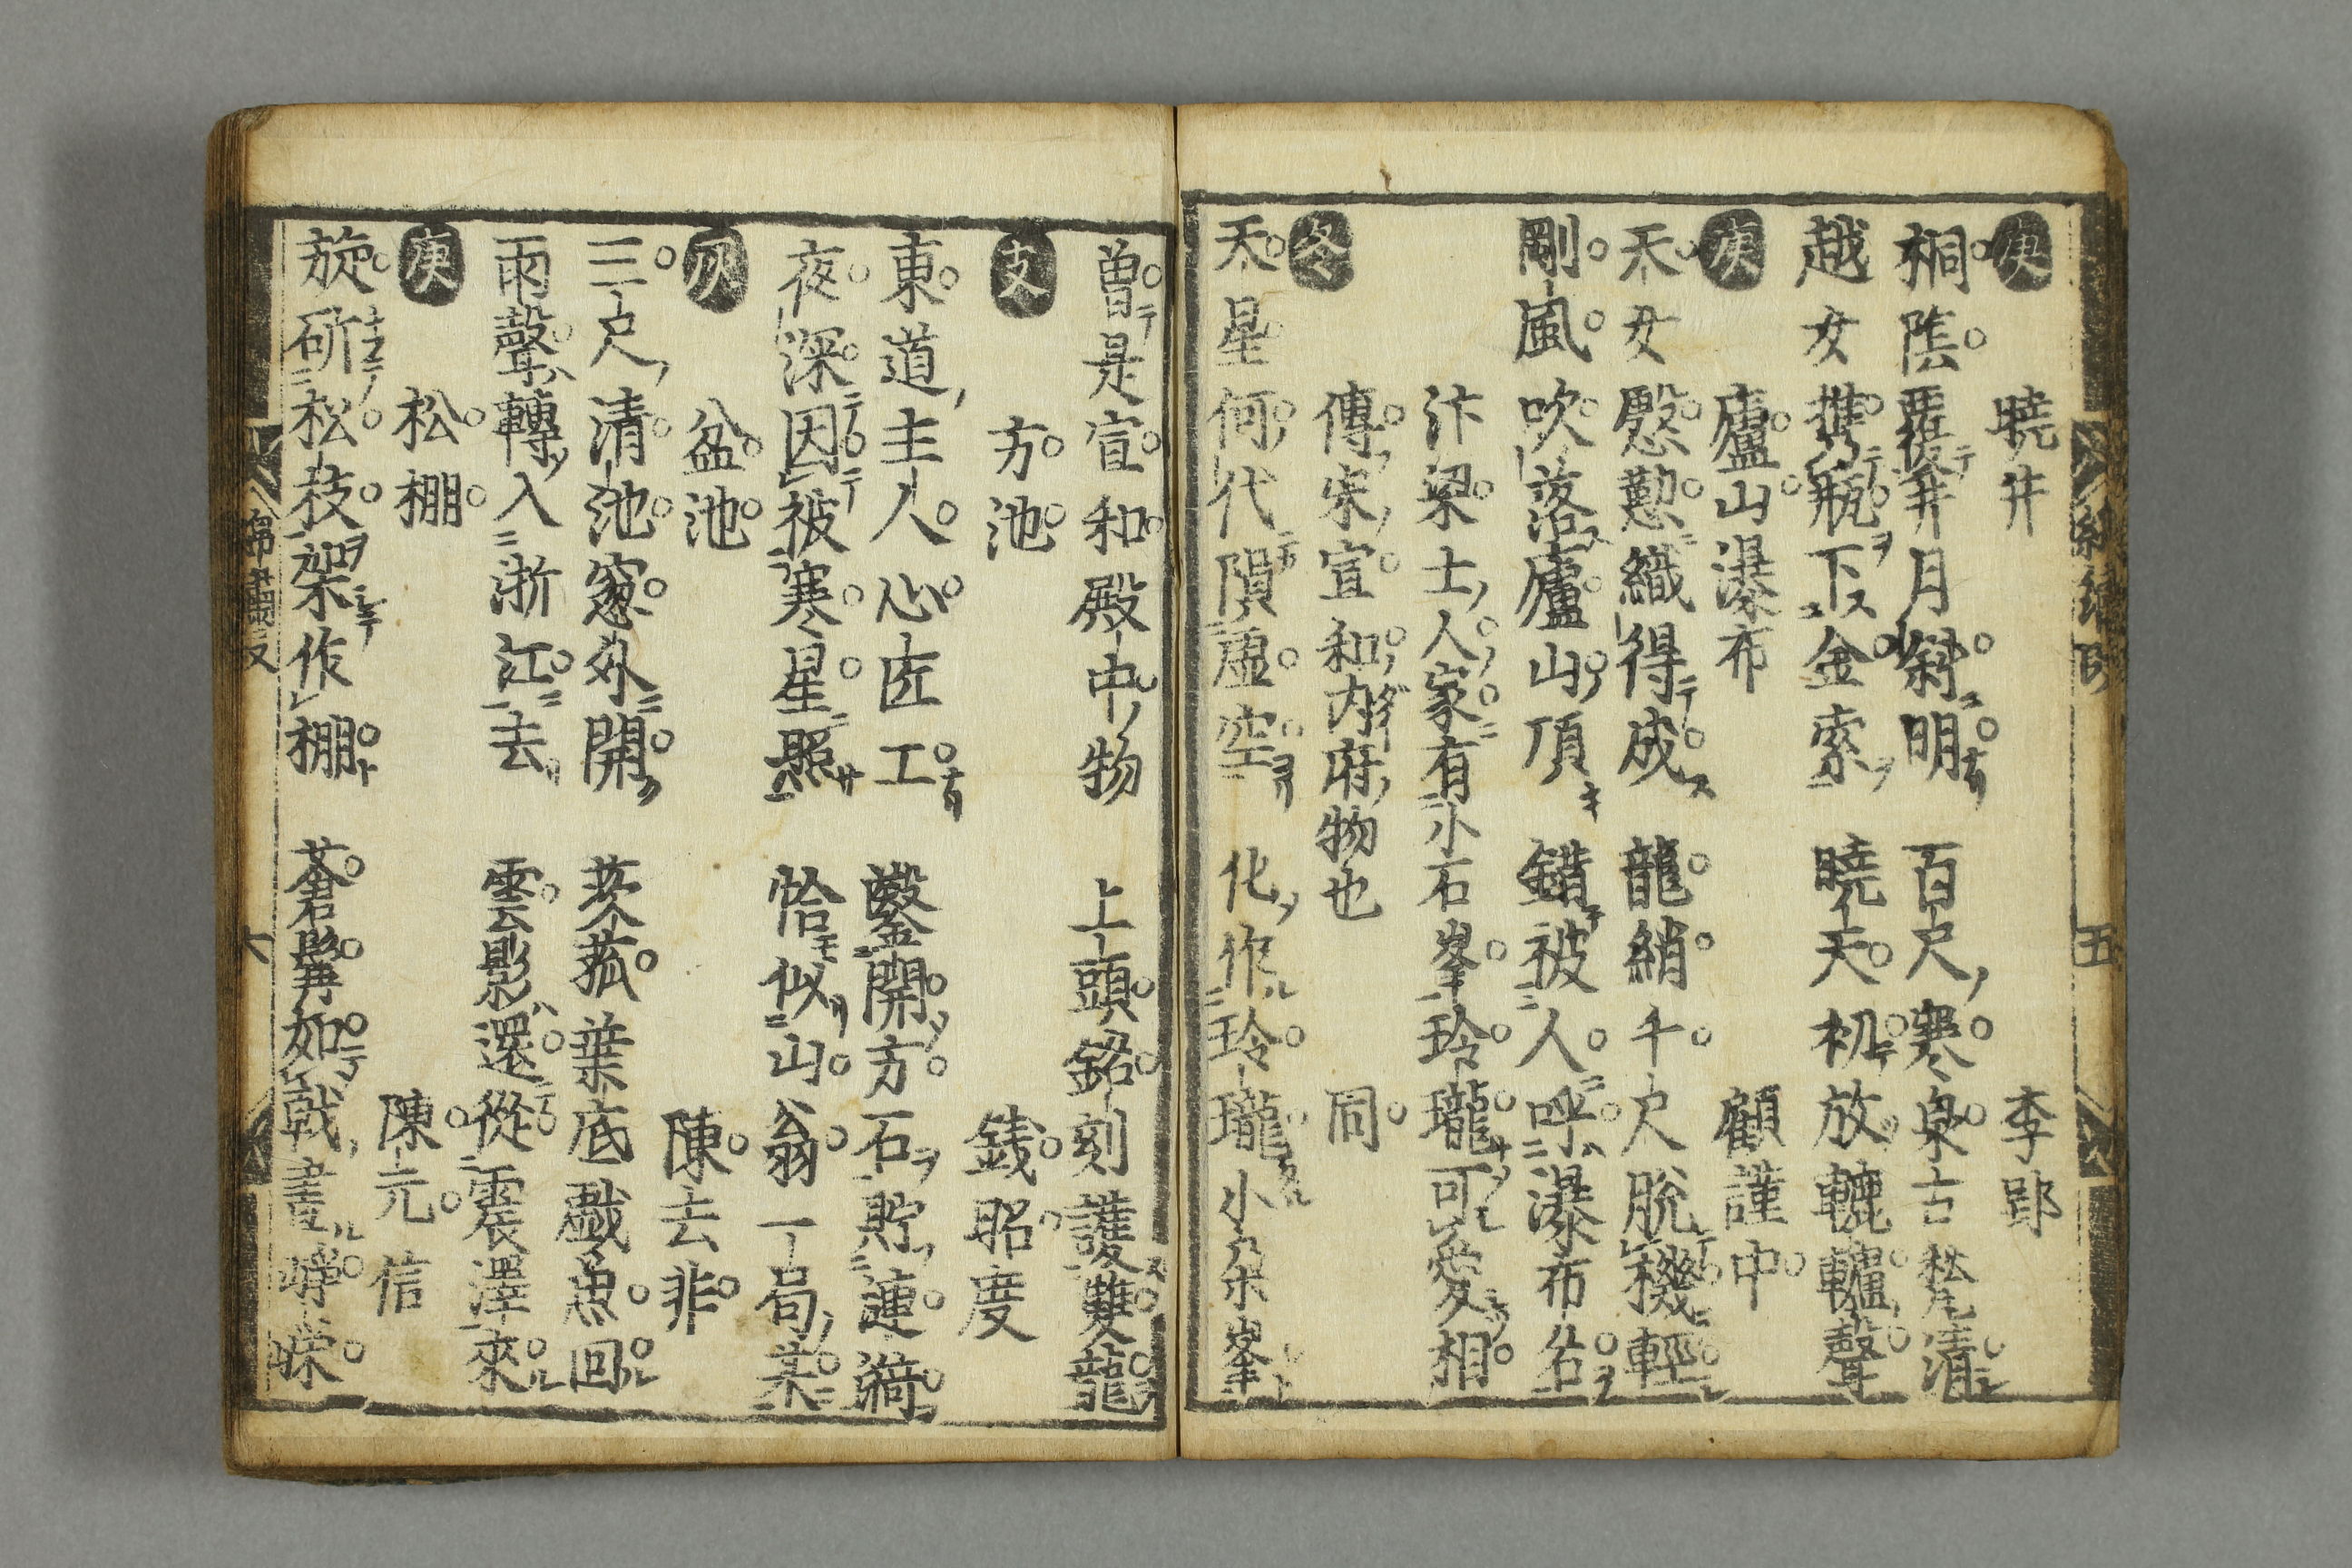 庚
曉井 李郢
桐陰覆井月斜明 百尺寒泉古甃清
越女携瓶下金索 曉天初放轆轤聲
庚
廬山瀑布 顧謹中
天女慇懃織得成 龍綃千尺脫機輕
剛風吹落廬山頂 錯被人呼瀑布名
汴梁士人家有小石峯玲瓏可愛相
冬
傳宋宣和內府物也 同
天星何代隕虛空 化作玲瓏小朶峯
五
曽是宣和殿中物 上頭銘刻護雙龍
支
方池 錢昭度
東道主人心匠工 鑿開方石貯蓮漪
夜深因被寒星照 恰似山翁一局棊
灰
盆池 陳去非
三尺清池窓外開 茨菰葉底戲魚回
雨聲轉入浙江去 雲影還從震澤來
庚
松棚 陳元信
旋斫松枝架作棚 蒼髯如戟晝崢嶸
六